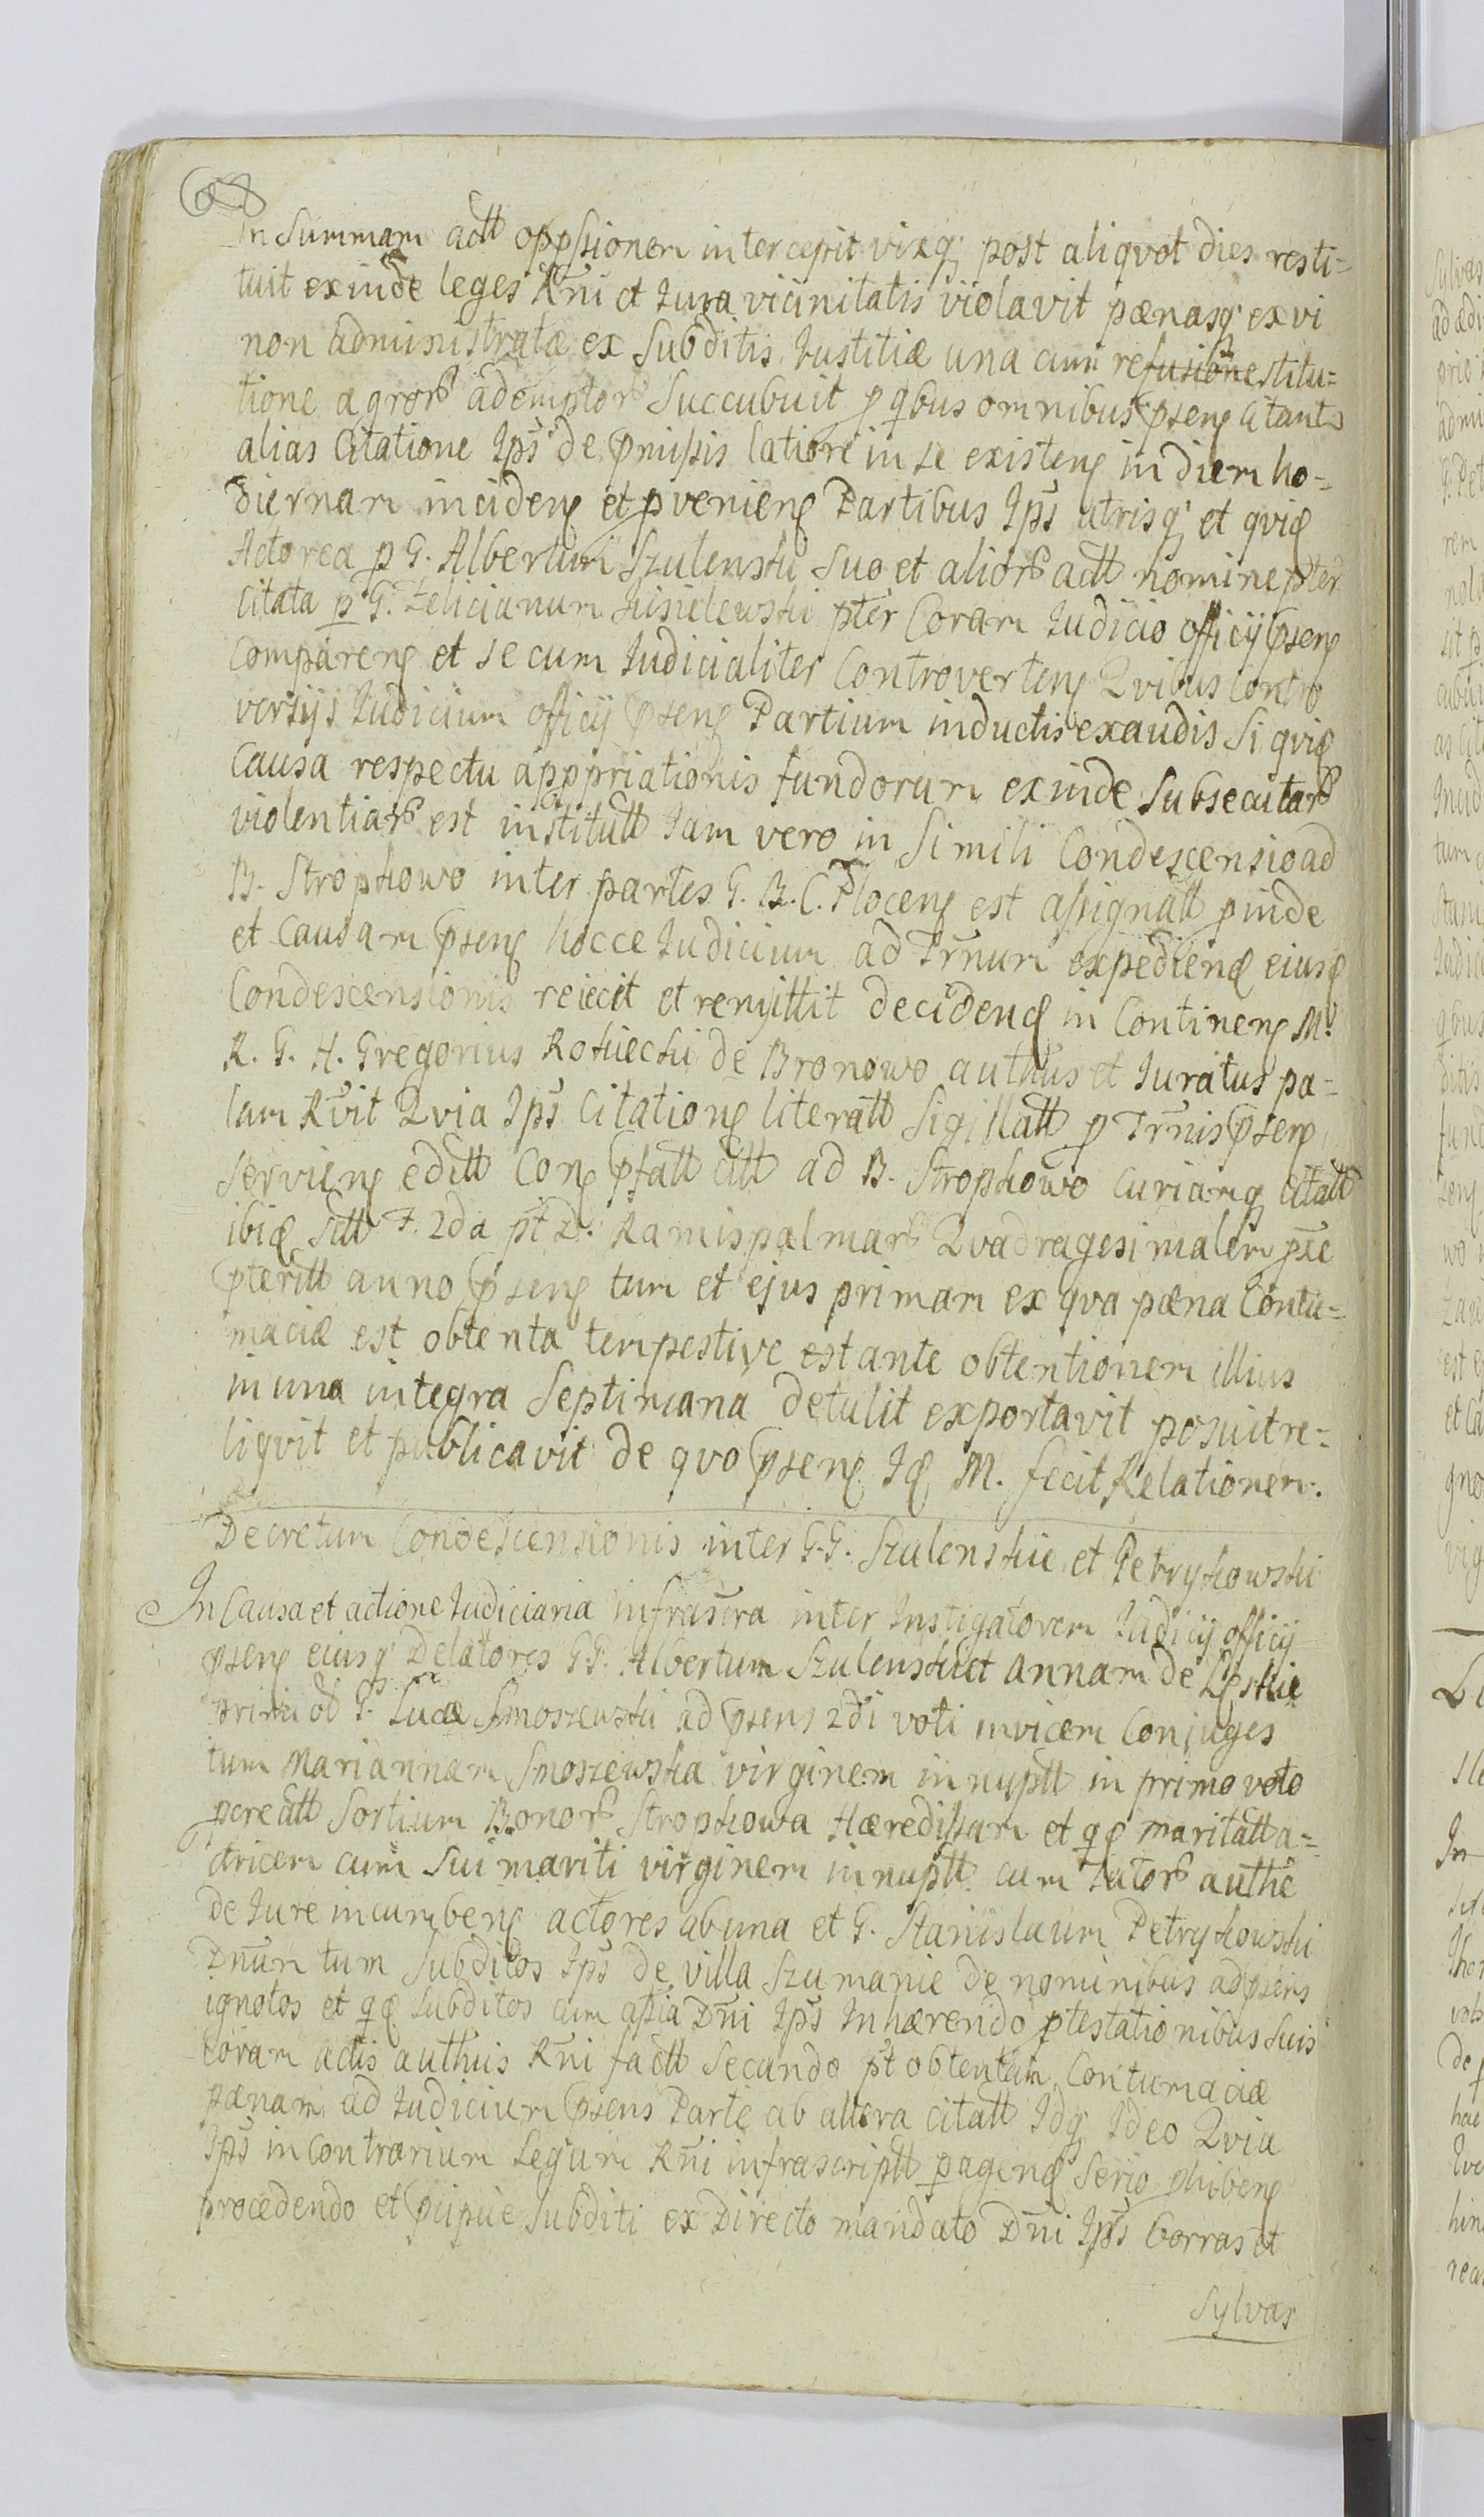 68
In Summam actt oppssionem intercepit vixq; post aliqvot dies resti=
tuit exinde leges Rni et Iura vicinitatis violavit pænasq; ex vi
non administratæ ex Subditis Iustitiæ una cum restitu=
tione agror ademptor Succubuit p qbus omnibus psens Citants
alias Citatione Ips de pmissis latiore in se existens in diem ho=
diernam incidens et pveniens Partibus Ips utrisq; et qviɖ
Actorea p G. Albertum Szulenski Suo et alior actt nomine pter
Citata p G. Felicianum Kisielewski pter Coram Iudicio officij psens
Comparens et secum Iudicialiter Controvertens Qvibus Contro
versijs Iudicium officij psens Partium inductis exaudis Si qviɖ
Causa respectu apppriationis fundorum exinde Subsecutar
violentiar est institutt Iam vero in Simili Condescensio ad
B. Stropkowo inter partes G. B. C. Plocens est assignatt pinde
et Causam psens hocce Iudicium ad Trnum expedienɖ eiusɖ
Condescensionis reiecit et remittit decidenɖ in Continens M.
R. G. H. Gregorius Rokiecki de Bronowo authus et Iuratus pa=
lam Rvit Qvia Ips Citations literatt Sigillatt p Trnis psens
serviens editt Cons pfatt citt ad B. Stropkowo Curiamq; citatt
ibiɖ sitt F. 2da pt D. Ramispalmar Qvadragesimalem pxe
pteritt anno psens tum et ejus primam ex qva pæna Contu=
maciæ est obtenta tempestive est ante obtentionem illius
in una integra Septimana detulit exportavit posuit re=
liqvit et publicavit de qvo psens Iɖ M. fecit Relationem.
Decretum Condescensionis inter G.G. Szulenskie et Petrykowski
In Causa et actione Iudiciaria infrascra inter Instigatorem Iudicij officij
psens eiusq; Delatores GG. Albertum Szulenski et Annam de
primi od G. Lucæ Smoszewski ad psens 2di voti invicem Conjuges
tum Mariannam Smoszewska virginem innuptt in primo voto
pcreatt Sortium Bonor Stropkowa Hæredissam et qɖ maritatt a=
ctricem cum Sui mariti virginem innuptt cum Tutor authe
de Iure incumbens actores ab una et G. Stanislaum Petrykowski
Dnum tum Subditos Ips de villa Szumanie de nominibus ad psens
ignotos et qɖ Subditos cum assia Dni Ips Inhærendo ptestationibus Suis
coram actis authuis Rni factt Secundo pt obtentam Contumaciæ
pænam ad Iudicium psens Parte ab altera Citatt Idq; Ideo Qvia
Ips in Contrarium Legum Rni infrascriptt pagenɖ Serio phibens
procedendo et pcipue Subditi ex Directo mandato Dni Ips borras et
Sylvas